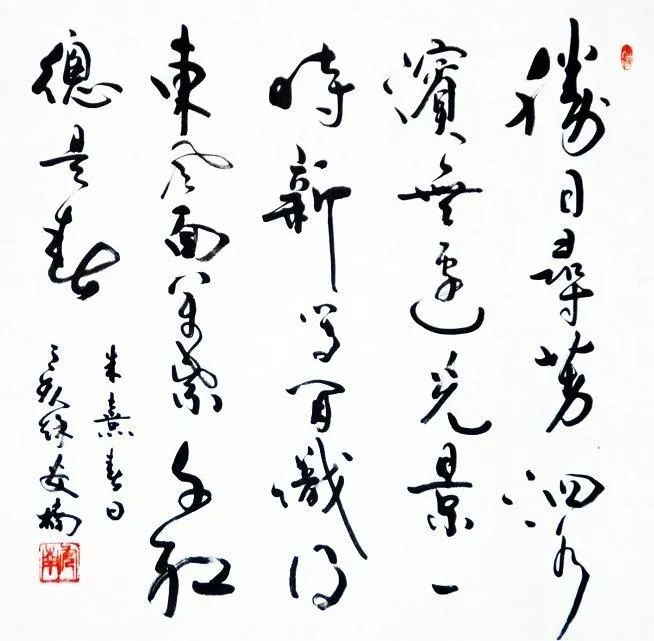 勝日尋芳泗水
濱無邊光景一
時新等閒識得
東風面萬紫千紅
總是春
朱熹春日
亥 楠